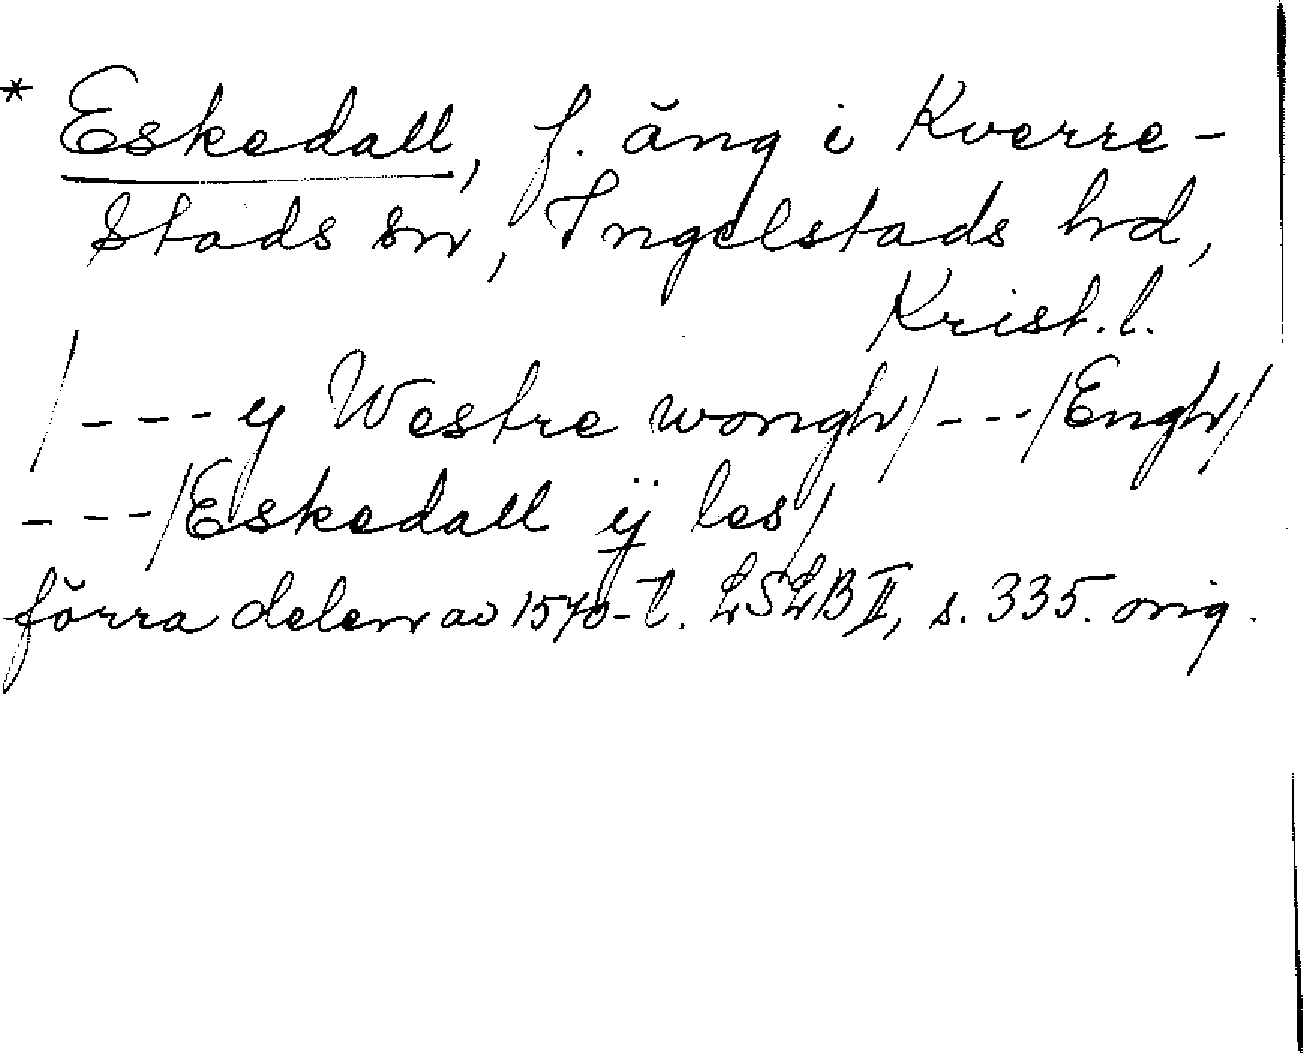 * Eskedall, f. äng i Kverre-
stads sn, Ingelstads hd,
Krist. l.
/---y Westre wongh/---/Engh/
---/Eskedall ÿ les/
förra delen av 1570-t. LSLB II, s. 335. orig.